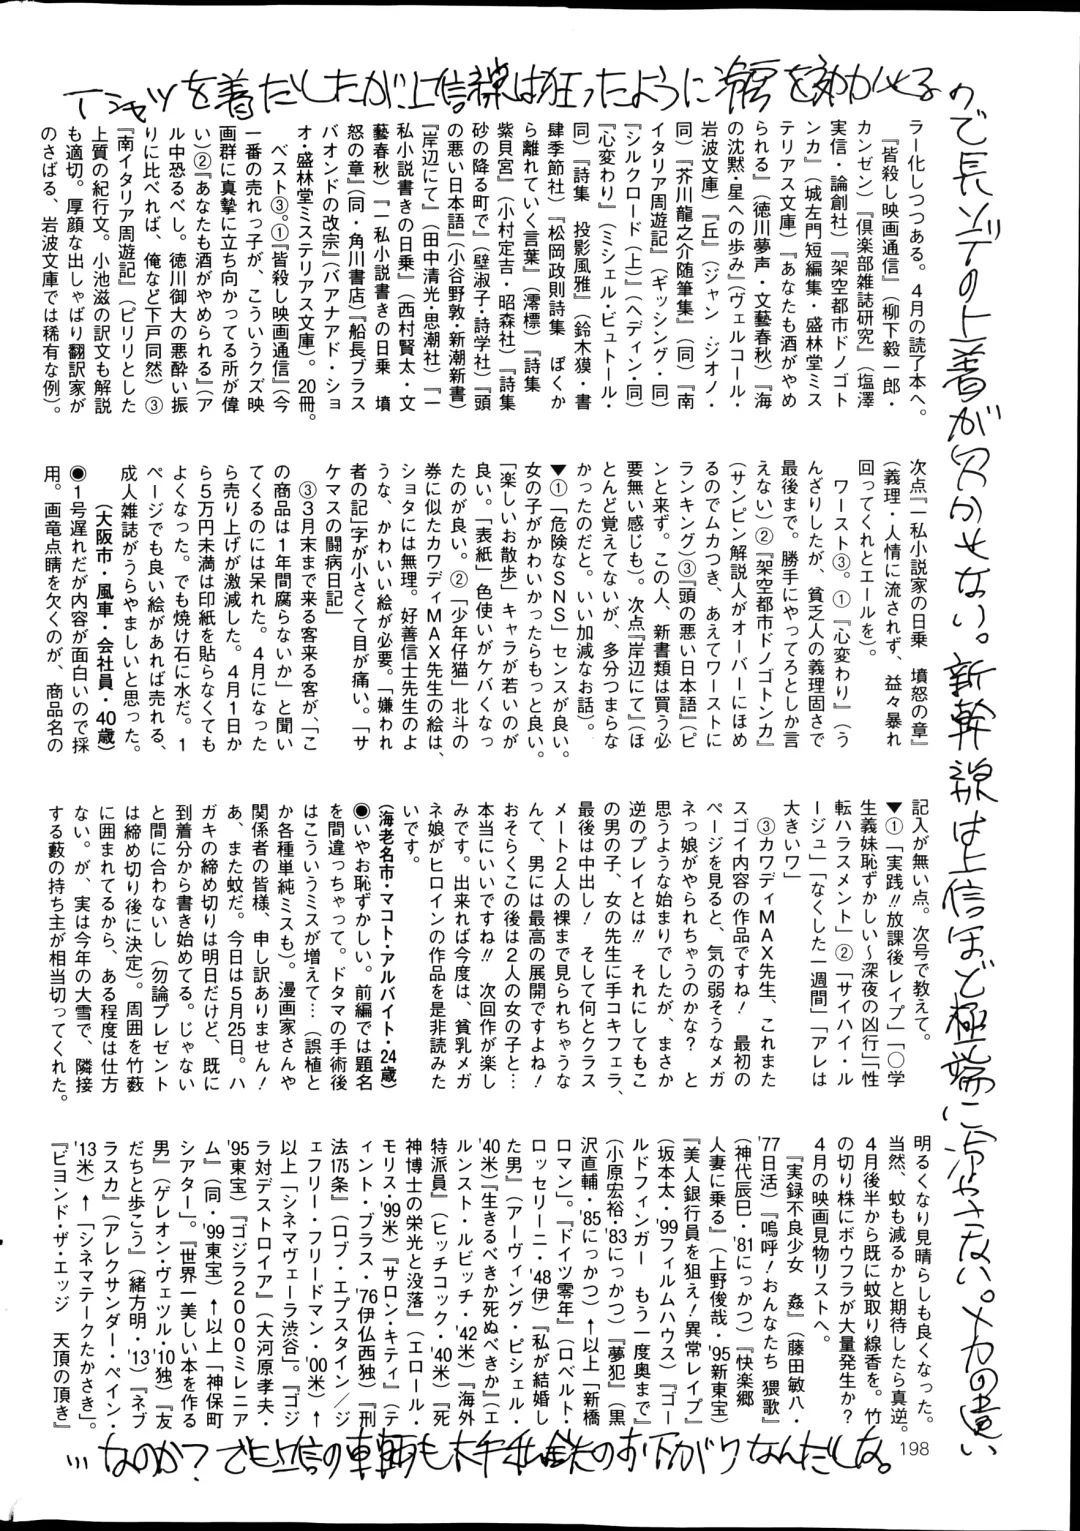 Tシャツを着だしたが、上信線は狂ったように冷房を効かせるので長ソデの上着が欠かせない。新幹線は上信ほど極端に冷やさない。メカの違い
…なのか？でも上信の車輌も大手私鉄のお下がりなんだしな。
ラー化しつつある。４月の読了本へ。
『皆殺し映画通信』（柳下毅一郎・
カンゼン）『倶楽部雑誌研究』（塩澤
実信・論創社）『架空都市ドノゴト
ンカ』（城左門短編集・盛林堂ミス
テリアス文庫）『あなたも酒がやめ
られる』（徳川夢声・文藝春秋）『海
の沈黙・星への歩み』（ヴェルコール・
岩波文庫）『丘』（ジャン・ジオノ・
同）『芥川龍之介随筆集』（同）『南
イタリア周遊記』（ギッシング・同）
『シルクロード（上）』（ヘディン・同）
『心変わり』（ミシェル・ビュトール・
同）『詩集　投影風雅』（鈴木獏・書
肆季節社）『松岡政則詩集　ぼくか
ら離れていく言葉』（澪標）『詩集
紫貝宮』（小村定吉・昭森社）『詩集
砂の降る町で』（壁淑子・詩学社）『頭
の悪い日本語』（小谷野敦・新潮新書）
『岸辺にて』（田中清光・思潮社）『一
私小説書きの日乗』（西村賢太・文
藝春秋）『一私小説書きの日乗　憤
怒の章』（同・角川書店）『船長ブラス
バオンドの改宗』（バアナアド・ショ
オ・盛林堂ミステリアス文庫）。20冊。
ベスト③。①『皆殺し映画通信』（今
一番の売れっ子が、こういうクズ映
画群に真摯に立ち向かってる所が偉
い）②『あなたも酒がやめられる』（ア
ル中恐るべし。徳川御大の悪酔い振
りに比べれば、俺など下戸同然）③
『南イタリア周遊記』（ピリリとした
上質の紀行文。小池滋の訳文も解説
も適切。厚顔な出しゃばり翻訳家が
のさばる、岩波文庫では稀有な例）。
次点『一私小説家の日乗　憤怒の章』
（義理・人情に流されず、益々暴れ
回ってくれとエールを）。
ワースト③。①『心変わり』（う
んざりしたが、貧乏人の義理固さで
最後まで。勝手にやってろとしか言
えない）②『架空都市ドノゴトンカ』
（サンピン解説人がオーバーにほめ
るのでムカつき、あえてワーストに
ランキング）③『頭の悪い日本語』（ピ
ンと来ず。この人、新書類は買う必
要無い感じも）。次点『岸辺にて』（ほ
とんど覚えてないが、多分つまらな
かったのだと。いい加減なお話）。
▼①「危険なＳＮＳ」センスが良い。
女の子がかわいかったらもっと良い。
「楽しいお散歩」キャラが若いのが
良い。「表紙」色使いがケバくなっ
たのが良い。②「少年仔猫」北斗の
券に似たカワディＭＡＸ先生の絵は、
ショタには無理。好善信士先生のよ
うな、かわいい絵が必要。「嫌われ
者の記」字が小さくて目が痛い。「サ
ケマスの闘病日記」
③３月末まで来る客来る客が、「こ
の商品は１年間腐らないか」と聞い
てくるのには呆れた。４月になった
ら売り上げが激減した。４月１日か
ら５万円未満は印紙を貼らなくても
よくなった。でも焼け石に水だ。１
ページでも良い絵があれば売れる、
成人雑誌がうらやましいと思った。
（大阪市・風車・会社員・40歳）
◉１号遅れだが内容が面白いので採
用。画竜点睛を欠くのが、商品名の
記入が無い点。次号で教えて。
（海老名市・マコト・アルバイト・24歳）
◉いやお恥ずかしい。前編では題名
を間違っちゃって。ドタマの手術後
はこういうミスが増えて…（誤植と
か各種単純ミスも）。漫画家さんや
関係者の皆様、申し訳ありません！
あ、また蚊だ。今日は５月25日。ハ
ガキの締め切りは明日だけど、既に
到着分から書き始めてる。じゃない
と間に合わないし（勿論プレゼント
は締め切り後に決定）。周囲を竹藪
に囲まれてるから、ある程度は仕方
ない。が、実は今年の大雪で、隣接
する藪の持ち主が相当切ってくれた。
明るくなり見晴らしも良くなった。
当然、蚊も減るかと期待したら真逆。
４月後半から既に蚊取り線香を。竹
の切り株にボウフラが大量発生か？
４月の映画見物リストへ。
『実録不良少女　姦』（藤田敏八・
'77日活）『嗚呼！おんなたち　猥歌』
（神代辰巳・'81にっかつ）『快楽郷
人妻に乗る』（上野俊哉・'95新東宝）
『美人銀行員を狙え！異常レイプ』
（坂本太・'99フィルムハウス）『ゴー
ルドフィンガー　もう一度奥まで』
（小原宏裕・'83にっかつ）『夢犯』（黒
沢直輔・'85にっかつ）↑以上「新橋
ロマン」。『ドイツ零年』（ロベルト・
ロッセリーニ・'48伊）『私が結婚し
た男』（アーヴィング・ピシェル・
'40米）『生きるべきか死ぬべきか』（エ
ルンスト・ルビッチ・'42米）『海外
特派員』（ヒッチコック・'40米）『死
神博士の栄光と没落』（エロール・
モリス・'99米）『サロン・キティ』（テ
ィント・ブラス・'76伊仏西独）『刑
法175条』（ロブ・エプスタイン／ジ
ェフリー・フリードマン・'00米）↑
以上「シネマヴェーラ渋谷」。『ゴジ
ラ対デストロイア』（大河原孝夫・
'95東宝）『ゴジラ２０００ミレニア
ム』（同・'99東宝）↑以上「神保町
シアター」。『世界一美しい本を作る
男』（ゲレオン・ヴェツル・'10独）『友
だちと歩こう』（緒方明・'13）『ネブ
ラスカ』（アレクサンダー・ペイン・
'13米）↑「シネマテークたかさき」。
『ビヨンド・ザ・エッジ　天頂の頂き』
198